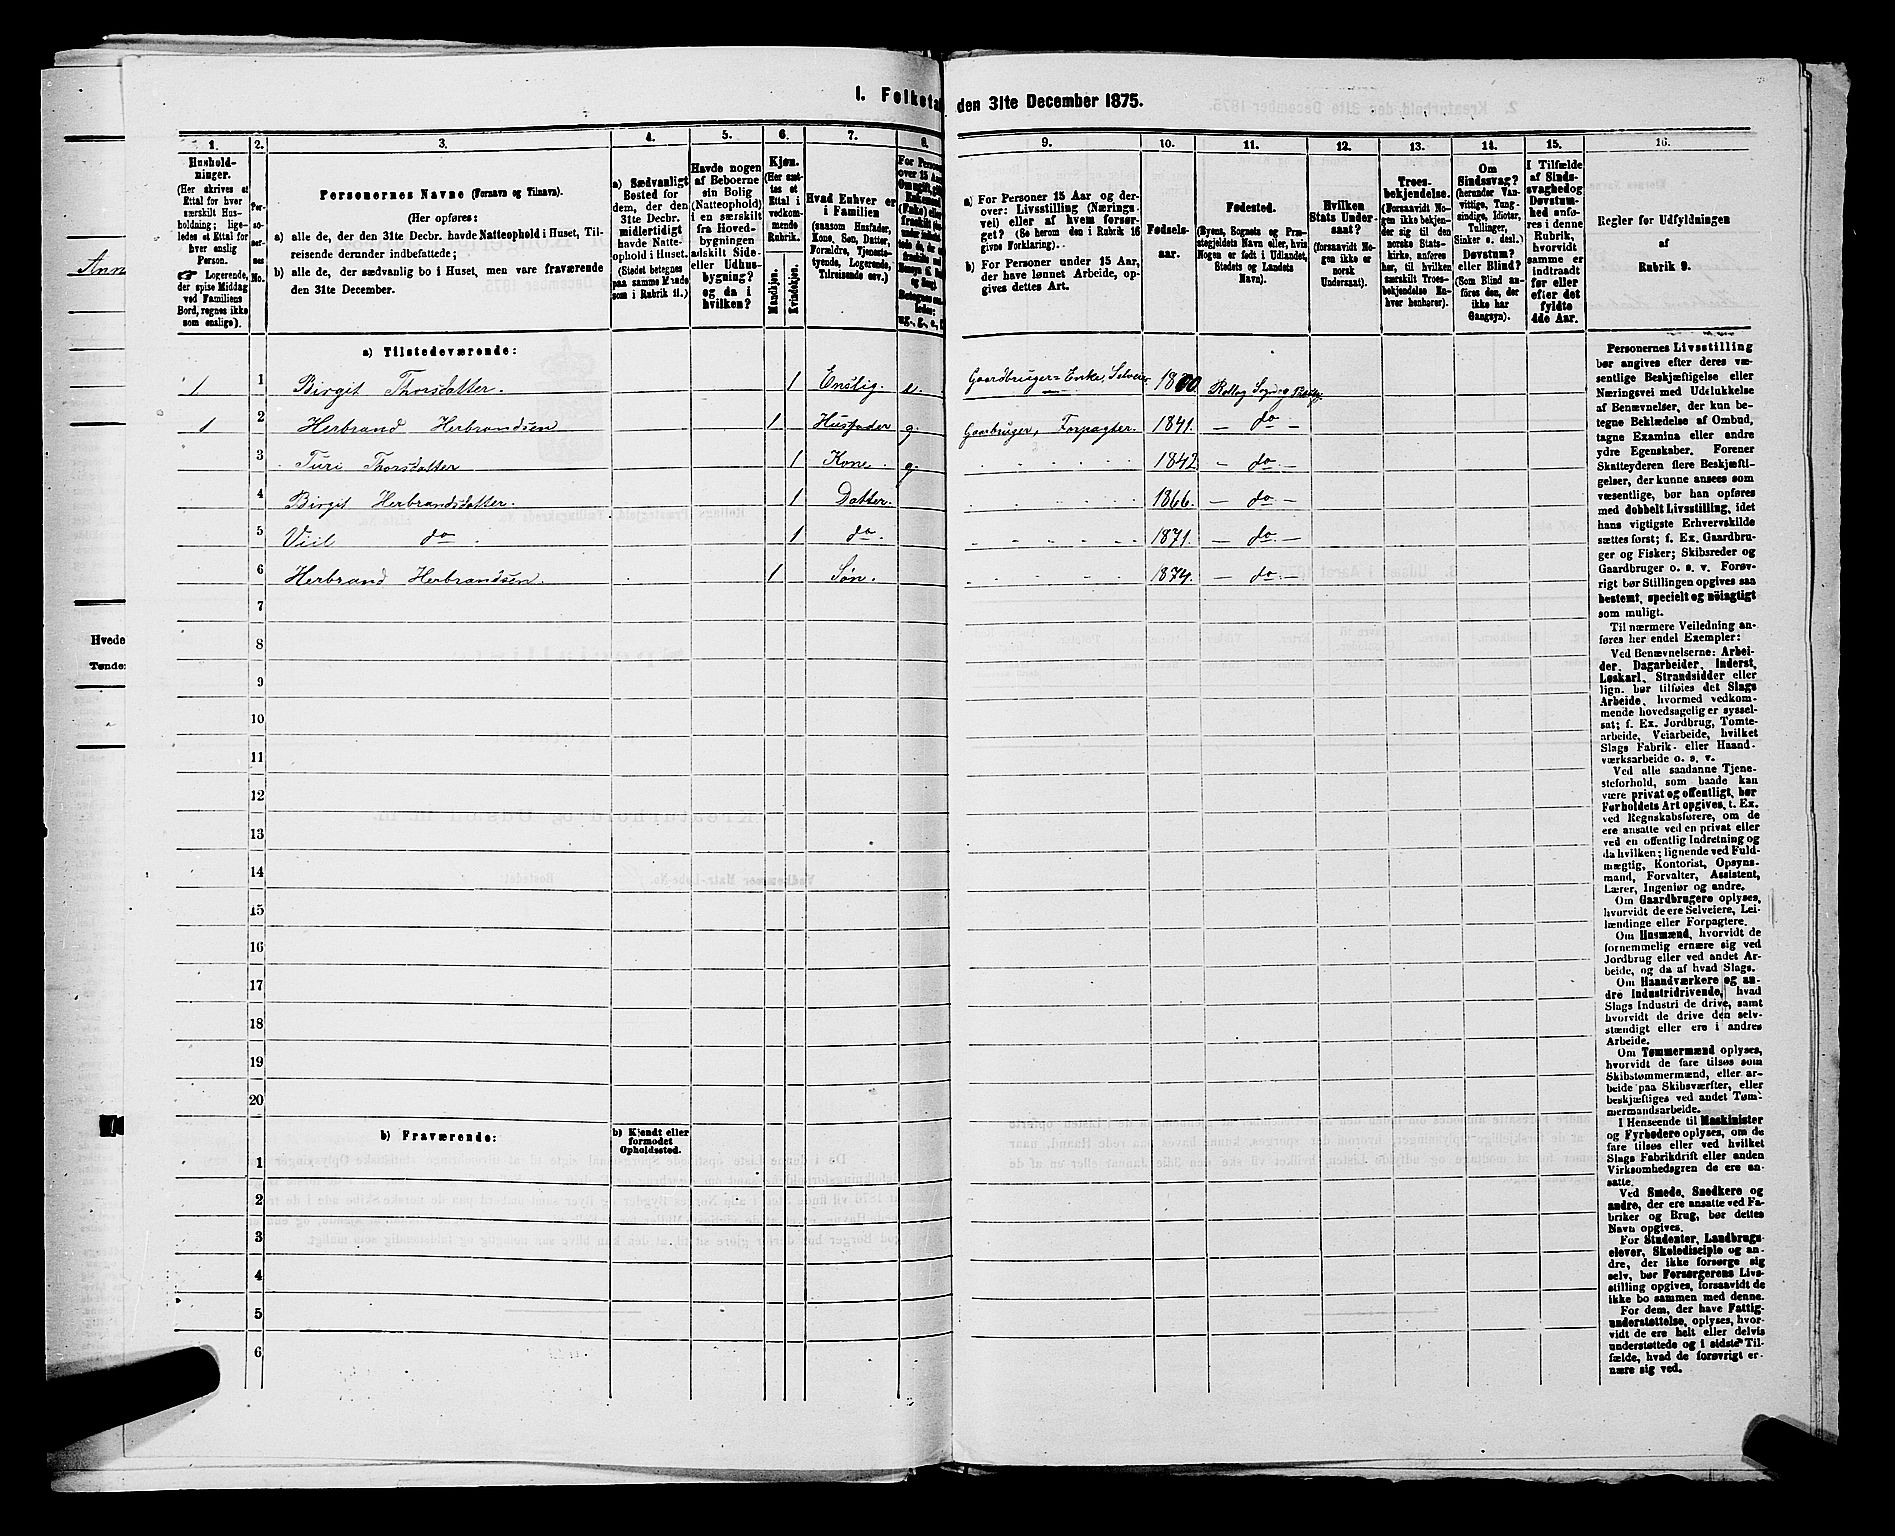 I. Folketa
den 31te December 1875.
1.
2.
3.
4.
5.
6.
7.
8.
9.
10.
11.
12.
13.
14.
15.
16.
Hushold-
ninger.
(Her skrives et
Ettal for hver
særskilt Hus-
holdning; lige-
ledes et Ettal for
hver enslig
Person.
☛ Logerende,
der spise Middag
ved Familiens
Bord, regnes ikke
som enslige).
Per-
soner-
nes
No.
Personernes Navne (Fornavn og Tilnavn).
(Her opføres:
a) alle de, der den 31te Decbr. havde Natteophold i Huset, Til-
reisende derunder indbefattede;
b) alle de, der sædvanlig bo i Huset, men vare fraværende
den 31te December.
a) Sædvanligt
Bosted for
dem, der den
31te Decbr.
midlertidigt
havde Natte-
ophold i Huset.
(Stedet betegnes
paa samme Maade
som i Rubrik 11.)
Havde nogen
af Beboerne
sin Bolig
(Natteophold)
i en særskilt
fra Hoved-
bygningen
adskilt Side-
eller Udhus-
bygning?
og da i
hvilken?
Kjøn.
(Her sæt-
tes et
Ettal i
vedkom-
mende
Rubrik.
Mandkjøn.
Kvindekjøn.
Hvad Enhver er
i Familien
(saasom Husfader,
Kone, Søn, Datter,
Forældre, Tjeneste-
tyende, Logerende,
Tilreisende osv.)
For Person
over 15 Aar
a) For Personer 15 Aar og der-
over: Livsstilling (Nærings-
vei) eller af hvem forsør-
get? (Se herom den i Rubrik 16
givne Forklaring).
b) For Personer under 15 Aar,
der have lønnet Arbeide, op-
gives dettes Art.
Fødsels-
aar.
Fødested.
(Byens, Sognets og Præ-
stegjeldets Navn eller, hvis
Nogen er født i Udlandet,
Stedets og Landets
Navn).
Hvilken
Stats Under-
saat?
(forsaavidt No-
gen ikke er
norsk
Undersaat).
Troes-
bekjendelse.
(Forsaavidt No-
gen ikke bekjen-
der sig til den
norske Stats-
kirke, anføres
her, til hvilken
særskilt Troes-
bekjendelse En-
hver henhører).
Om
Sindssvag?
(herunder Van-
vittige, Tung-
sindige, Idioter,
Tullinger,
Sinker o. desl.)
Døvstum?
eller Blind?
(Som Blind an-
føres den, der
ikke har
Gangsyn).
I Tilfælde
af Sinds-
svaghed og
Døvstum-
hed anfø-
res i denne
Rubrik,
hvorvidt
samme er
indtraadt
før eller
efter det
fyldte
4de Aar.
Regler for Udfyldningen
af
Rubrik 9.
a) Tilstedeværende:
1 1 Birgit Thorsdatter. 1 Enslig e. Gaardbruger= Enke, Selveier 1800. Rollag Sogn og Præstg.
1 2 Herbrand Herbrandsen 1 Husfader g. Gaarbruger, Forpagter. 1841. — do —
3 Turi Thorsdatter 1 Kone. g. 1842 — do. —
4 Birgit Herbrandsdatter. 1 Datter. 1866. — do. —
5 do 1 do. 1871. — do. —
6 Herbrand Herbrandsen. 1 Søn. 1874. — do. —
7
8
9
10
11
12
13
14
15
16
17
18
19
20
b) Fraværende:
b) Kjendt eller
formodet
Opholdssted.
1
2
3
4
5
6
Personernes Livsstilling
bør angives efter deres væ-
sentlige Beskjæftigelse eller
Næringsvei med Udelukkelse
af Benævnelser, der kun be-
tegne Beklædelse af Ombud,
tagne Examina eller andre
ydre Egenskaber. Forener
Skatteyderen flere Beskjæfti-
gelser, der kunne ansees som
væsentlige, bør han opføres
med dobbelt Livsstilling, idet
hans vigtigste Erhvervskilde
sættes først; f. Ex. Gaardbru-
ger og Fisker; Skibsreder og
Gaardbruger o. s. v. Forøv-
rigt bør Stillingen opgives saa
bestemt, specielt og nöiagtigt
som muligt.
Til nærmere Veiledning an-
føres her endel Exempler:
Ved Benævnelserne: Arbei-
der, Dagarbeider, Inderst,
Løskarl, Strandsidder eller
lign. bør tilføies det Slags
Arbeide, hvormed vedkom-
mende hovedsagelig er syssel-
sat; f. Ex. Jordbrug, Tomte-
arbeide, Veiarbeide, hvilket
Slags Fabrik- eller Haand-
værksarbeide o. s. v.
Ved alle saadanne Tjene-
steforhold, som baade kan
være privat og offentligt, bør
Forholdets Art opgives, t. Ex.
ved Regnskabsførere, om de
ere ansatte ved en privat eller
ved en offentlig Indretning og
da hvilken; lignende ved Fuld-
mægtig, Kontorist, Opsyns-
mand, Forvalter, Assistent,
Lærer, Ingeniør og andre.
Om Gaardbrugere oplyses,
hvorvidt de ere Selveiere, Lei-
lændinge eller Forpagtere.
Om Husmænd, hvorvidt de
fornemmelig ernære sig ved
Jordbrug eller ved andet Ar-
beide, og da af hvad Slags.
Om Haandværkere og an-
dre Industridrivende, hvad
Slags Industri de drive, samt
hvorvidt de drive den selv-
stændigt eller ere i andres
Arbeide.
Om Tømmermænd oplyses,
hvorvidt de fare tilsøs som
Skibstømmermænd, eller ar-
beide paa Skibsværfter, eller
beskjæftiges ved andet Tøm-
mermandsarbeide.
I Henseende til Maskinister
og Fyrbødere oplyses, om de
fare tilsøs eller ved hvilket
Slags Fabrikdrift eller anden
Virksomhedsgren de ere an-
satte.
Ved Smede, Snedkere og
andre, der ere ansatte ved Fa-
briker og Brug, bør dettes
Navn opgives.
For Studenter, Landbrugs-
elever, Skoledisciple og an-
dre, der ikke forsørge sig
selv, bør Forsørgerens Livs-
stilling opgives, forsaavidt de
ikke bo sammen med denne.
For dem, der have Fattig-
understøttelse, oplyses, hvor-
vidt de ere helt eller delvis
understøttede og i sidste Til-
fælde, hvad de forøvrigt er-
nære sig ved.
Ann
Hvede
Tønde: